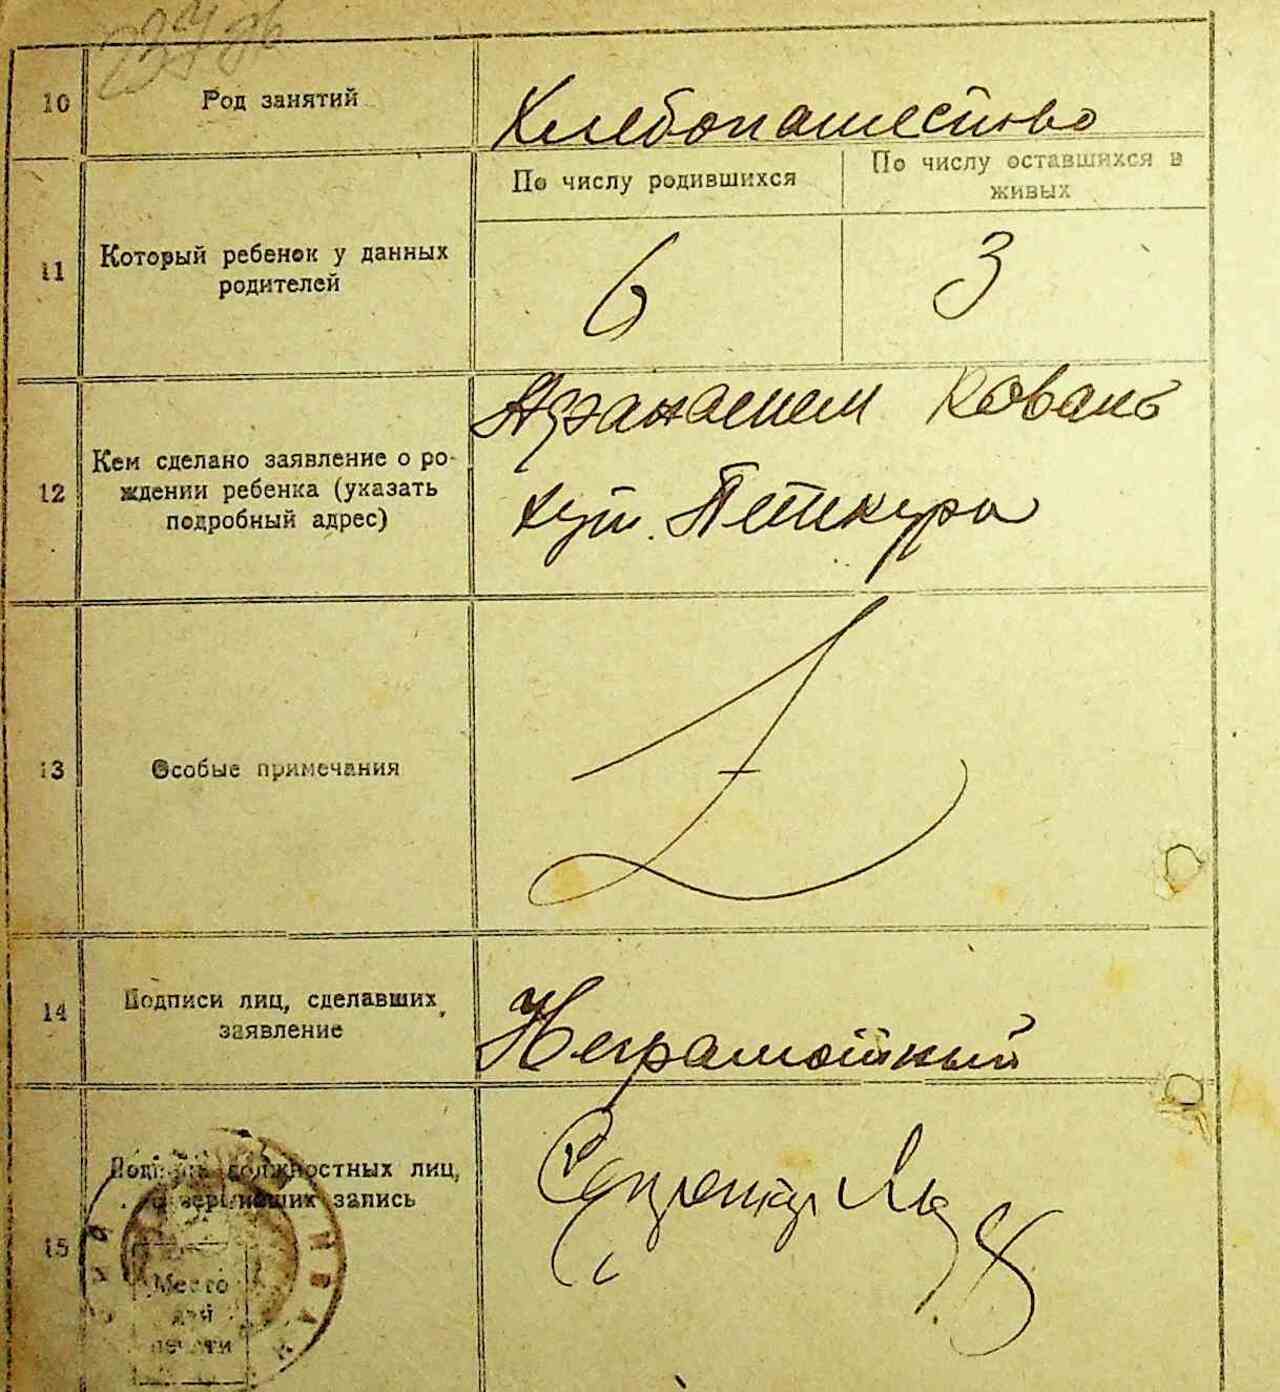 10
Род занятий
Хлебопашество
11
Который ребенок у данных
родителей
По числу родившихся
По числу оставшихся в
живых
6
3
12
Кем сделано заявление о ро-
ждении ребенка (указать
подробный адрес)
Афанасием Ковань
хут. Петикура
13
Особые примечания
14
Подписи лиц, сделавших
заявление
Неграмотный
15
Подписи должностных лиц,
совершивших запись
Место
для
печати